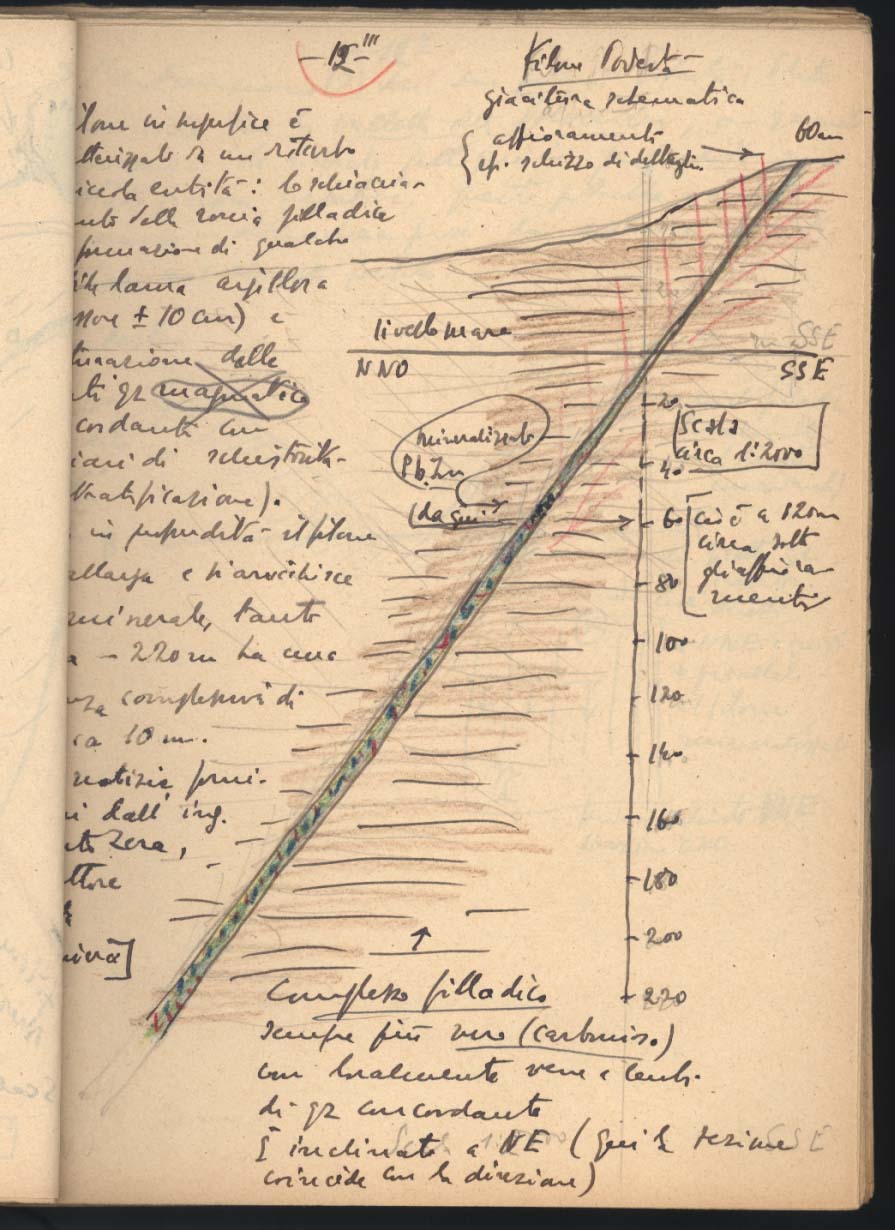 Filone Poderta
giacitura schematica
affioramenti
cfr. schizzo di dettaglio
60 m
lone in superfice è
tterizzato da un disturbo
iccola entità: lo schiaccia-
nto della roccia filladica
formazione di qualche
lama argillosa
sore ± 10 cm) e
delle
ti qz magmatico
cordanti con
iani di schistosità-
tratificazione).
in profondità il filone
allarga e si arricchisce
minerale, tanto
a - 220 m ha una
nza complessiva di
ca 10 m.
notizie forni-
i dall'ing.
Zera,
ttore
niera]
livello mare
NNO
SSE
SSE
mineralizzato
Pb. Zn
(da qui
Scala
circa 1:2000
cioè a 120 m
circa sotto
gli affiora-
menti
20
40
60
80
100
120
140
160
180
200
220
Complesso filladico
sempre più nero (carbonios.)
con localmente vene e lenti
di qz concordante
È inclinato a NE (qui la sezione
coincide con la direzione)